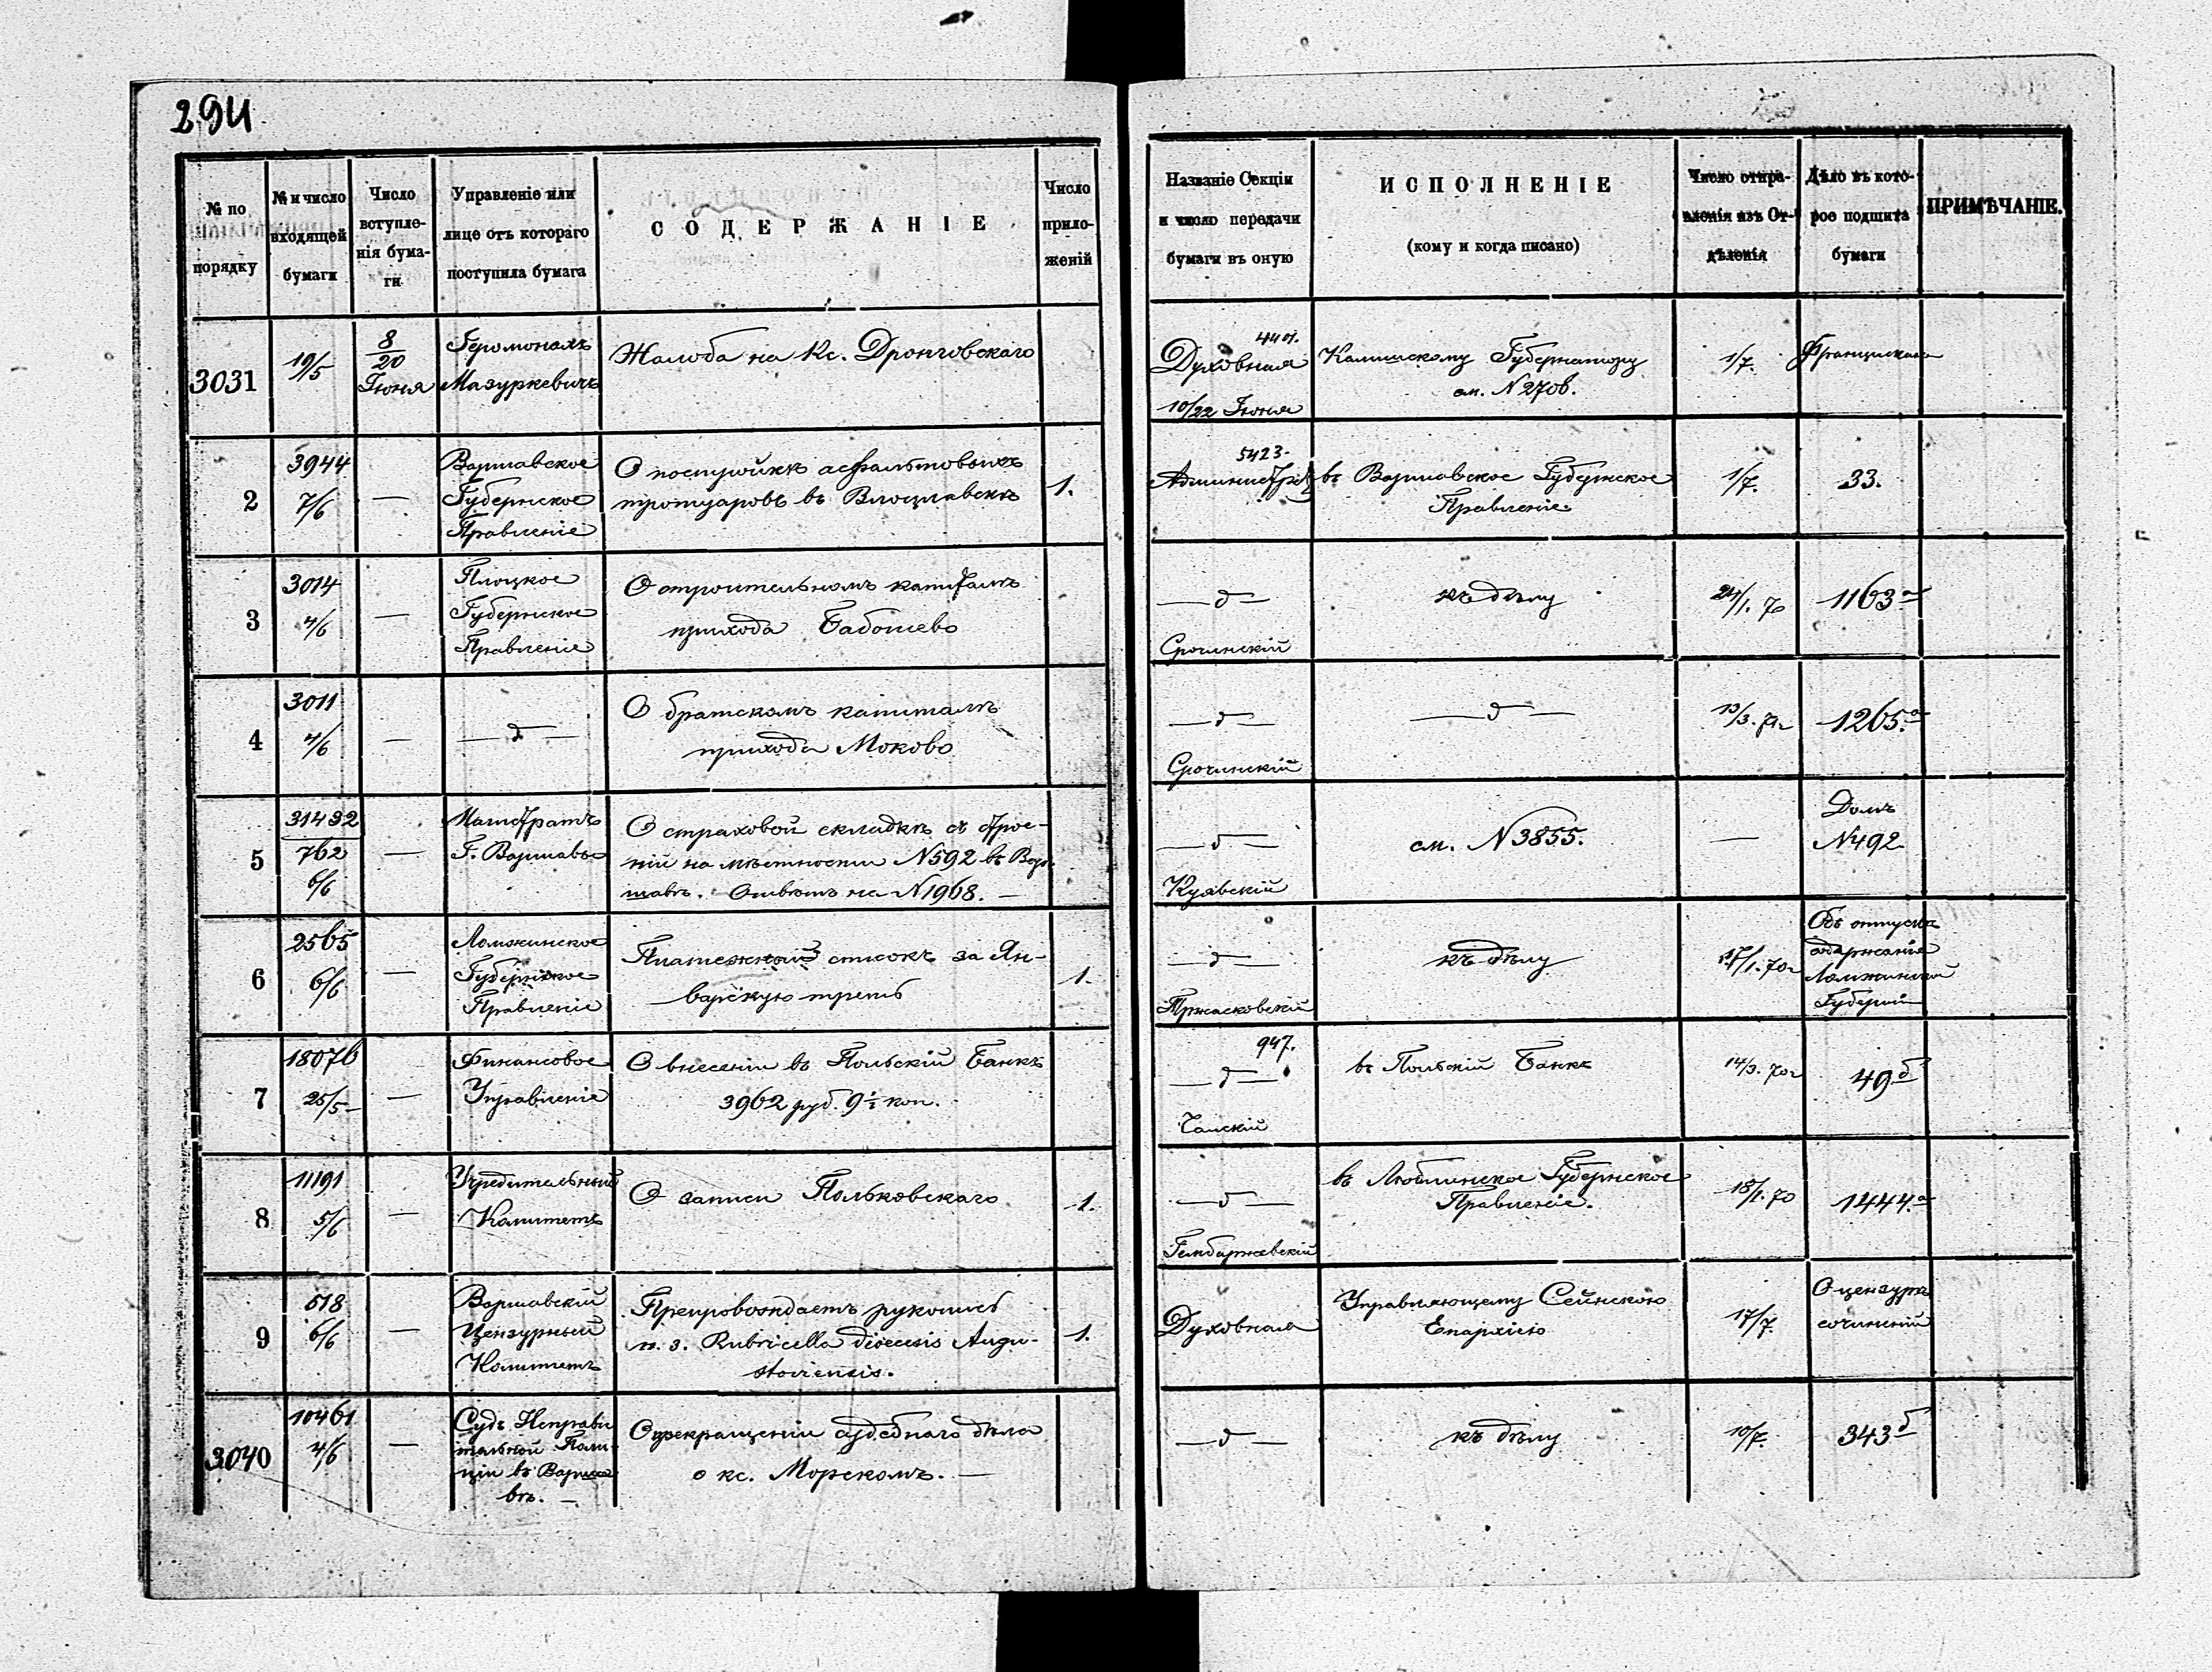 294
№ по порядку
№ и число входящей бумаги
Число вступленія бумаги
Управленіе или лице отъ котораго поступила бумага
СОДЕРЖАНІЕ
Число приложеній
Названіе Секціи и число передачи бумаги въ оную
ИСПОЛНЕНІЕ
(кому и когда писано)
Число отправленія изъ Отдѣленія
Дѣло въ которое подшита бумаги
ПРИМѢЧАНІЕ.
3031
19/5
8/20 Іюня
Іеромонахъ
Мазуркевичъ
Жалоба на Кс. Дронговскаго
4401.
Духовная
10/22 Іюня
Калишскому Губернатору
см. N 2706.
1/7.
Францискана
2
3944
7/6
—
Варшавское
Губернское
Правленіе
О постройкѣ асфальтовыхъ
тротуаровъ въ Влоцлавскѣ
1.
5423.
въ Варшавское Губернское
Правленіе.
1/7.
33.
3
3014
4/6
—
Плоцкое
Губернское
Правленіе
О строительномъ капиталѣ
прихода Бабошево
— д —
Срочинскій
къ дѣлу
24/1. 70
1163 а
4
3011
4/6
—
— д —
О братскомъ капиталѣ
прихода Моково
— д —
Срочинскій
— д —
1265. а
5
31432
762
6/6
—
Магистратъ
Г. Варшавы
О страховой складкѣ съ строе-
ній на мѣстности N 592 въ Вар-
шавѣ. Отвѣтъ на N 1968. —
— д —
Куявскій
см. N 3855.
—
Домъ
N 492
6
2565
6/6
—
Ломжинское
Губернское
Правленіе
Платежный списокъ за Ян-
варскую треть
1.
— д —
Тржасковскій
къ дѣлу
Объ отпускѣ
содержанія
Ломжинской
Губерніи
7
18076
25/5
—
Финансовое
Управленіе
О внесеніи въ Польскій Банкъ
3962 руб. 9½ коп.
947.
— д —
въ Польскій Банкъ
14/3. 70 г
49 б
8
11191
5/6
—
Учредительный
Комитетъ
О записи Польковскаго
1.
— д —
Гембаржевскій
въ Люблинское Губернское
Правленіе.
18/1. 70
1444. а
9
518
6/6
—
Варшавскій
Цензурный
Комитетъ
Препровождаетъ рукопись
п. з. Rubricella dioecesis Augu-
stoviensis.
1.
Духовная
Управляющему Сейнскою
Епархіею
17/7.
О цензурѣ
сочиненій
3040
10461
4/6
—
Судъ Исправи
тельной Поли-
ціи въ Варша
вѣ. —
О прекращеніи судебнаго дѣла
о кс. Морскомъ. —
— д —
къ дѣлу
10/7.
343 б